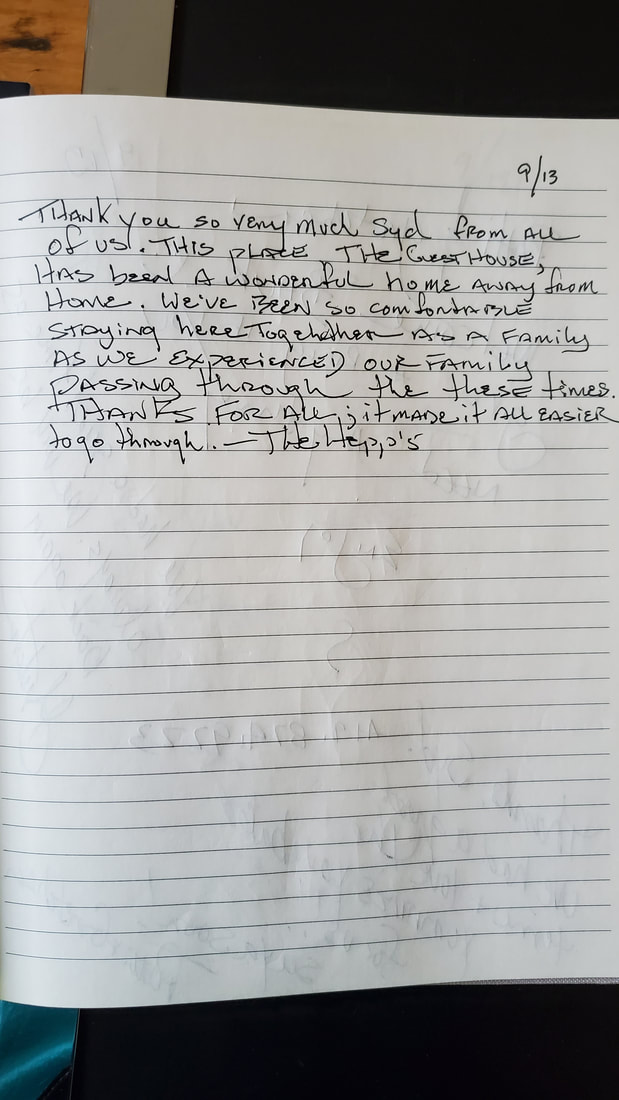 9/13
THANK you so very much Syd from ALL
OF US. THIS PLACE, THE GUEST HOUSE,
HAS been A WONDERFUL home AWAY from
Home. We've BEEN so comfortABLE
STAYING here Togehther AS A FAMILY
AS WE EXPERIENCED OUR FAMILY
PASSING through the these times.
THANKS FOR ALL; it MADE it ALL EASIER
to go through. — The Hepp's